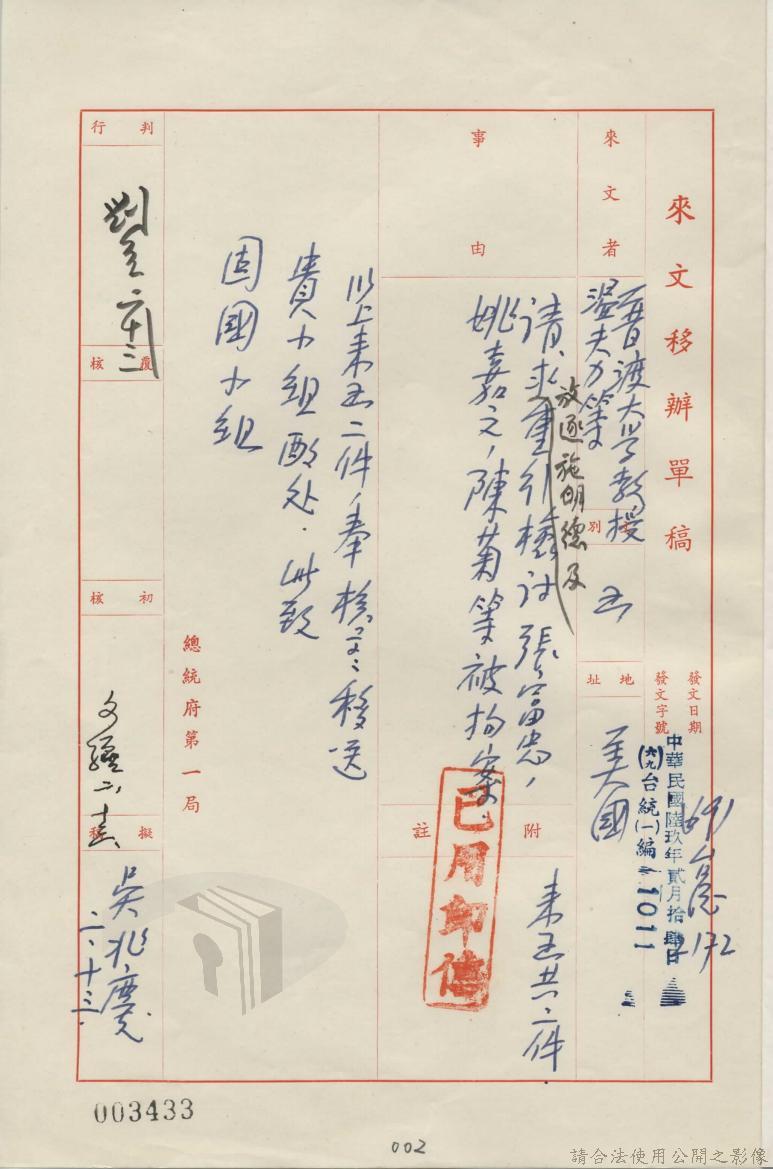 來文移辦單稿
發文日期
發文字號
中華民國陸玖年貳月拾肆日
(六九)台統(一)編 1011
來文者
普渡大學教授
溫夫力等
別
函
地址
美國
事由
請求重行檢討張富忠,
放逐施明德及
姚嘉文,陳菊等被拘案.
附註
來函共二件.
已用印信
以上來函二件,奉核定移送
貴小組酌处.此致
固國小組
總統府第一局
判行
覆核
初核
擬稿
吳兆慶
二.十三.
003433
002
請合法使用公開之影像